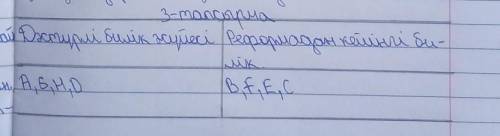 3-тапсырма
Дәстүрлі билік жүйесі Реформадан кейінгі би-
лік
A, Б, H, D B, F, E, C